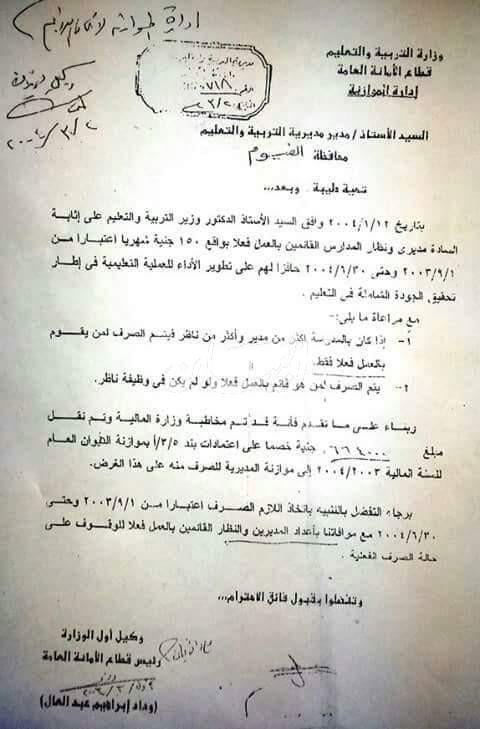 إدارة الموازنة
وزارة التربية والتعليم
قطاع الأمانة العامة
إدارة الموازنة
السيد الأستاذ / مدير مديرية التربية والتعليم
محافظة الفيوم
تحية طيبة وبعد،،،
بتاريخ ٢٠٠٤/١/١٢ وافق السيد الأستاذ الدكتور وزير التربية والتعليم على إثابة
السادة مديرى ونظار المدارس القائمين بالعمل فعلا بواقع ١٥٠ جنية شهريا اعتبارا من
٢٠٠٣/٩/١ وحتى ٢٠٠٤/٦/٣٠ حافزا لهم على تطوير الأداء للعملية التعليمية فى إطار
تحقيق الجودة الشاملة فى التعليم .
مع مراعاة ما يلى:-
١- إذا كان بالمدرسة أكثر من مدير وأكثر من ناظر فيتم الصرف لمن يقوم
بالعمل فعلا فقط.
٢- يتم الصرف لمن هو قائم بالعمل فعلا ولو لم يكن فى وظيفة ناظر.
وبناء على ما تقدم فأنة قد تم مخاطبة وزارة المالية وتم نقل
مبلغ ٦٦٤٠٠٠ جنية خصما على اعتمادات بند ٣/٥/أ بموازنة الديوان العام
للسنة المالية ٢٠٠٤/٢٠٠٣ إلى موازنة المديرية للصرف منه على هذا الغرض.
برجاء التفضل بالتنبيه باتخاذ اللازم الصرف اعتبارا من ٢٠٠٣/٩/١ وحتى
٢٠٠٤/٦/٣٠ مع موافاتنا بأعداد المديرين والنظار القائمين بالعمل فعلا للوقوف على
حالة الصرف الفعلية .
وتفضلوا بقبول فائق الاحترام،،،
وكيل أول الوزارة
ورئيس قطاع الأمانة العامة
(وداد إبراهيم عبد العال)